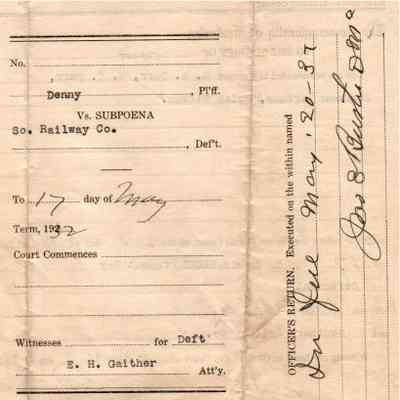 No.
Denny , Pl'ff.
Vs. SUBPOENA
So. Railway Co.
, Def't.
To 17 day of May
Term, 1932
Court Commences
Witnesses for Deft
E. H. Gaither
Att'y.
OFFICER'S RETURN. Executed on the within named
May 20-32
Jno